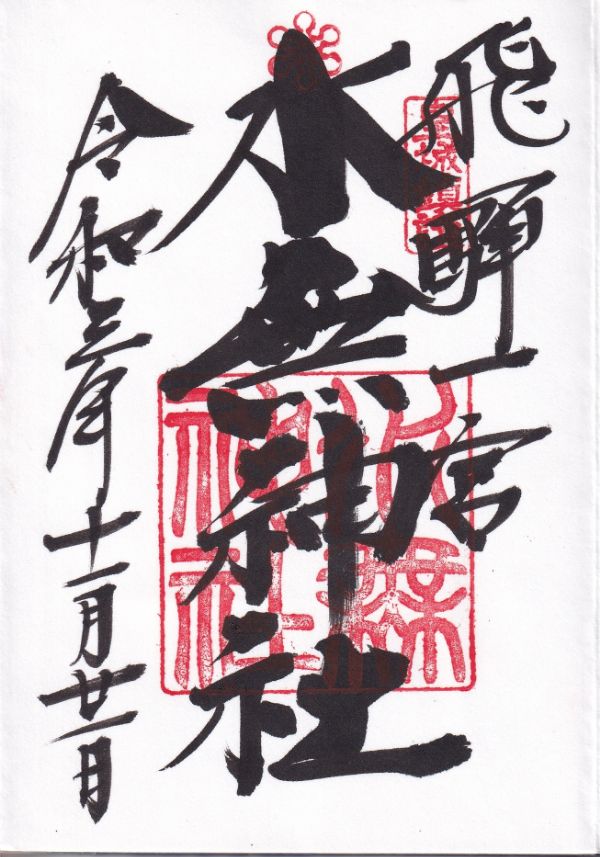 飛騨一宮
水無神社
令和三年十一月廿一日
水無神社